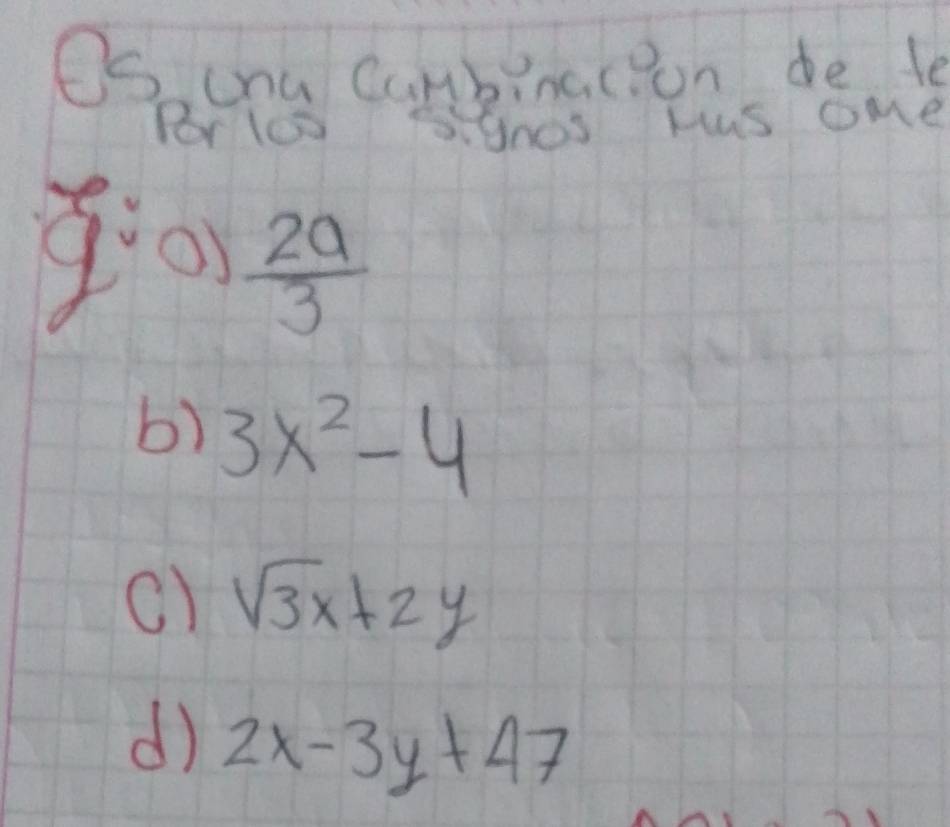 Es una Combinacion de te
Por los signos Mas ome
Ej: a) 2a/3
b) 3x² - 4
c) √3x + 2y
d) 2x - 3y + 47